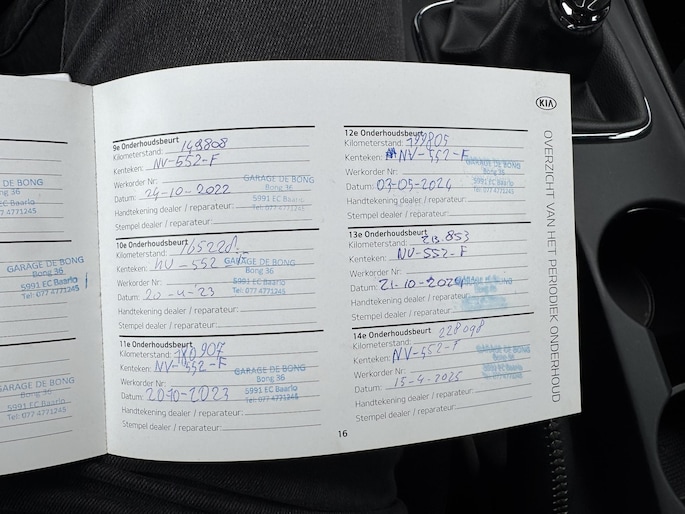 GARAGE DE BONG
Bong 36
5991 EC Baarlo
Tel: 077 4771245
GARAGE DE BONG
Bong 36
5991 EC Baarlo
Tel: 077 4771245
9e Onderhoudsbeurt
Kilometerstand: 149808
Kenteken: NV-552-F
Werkorder Nr:
Datum: 24-10-2022
Handtekening dealer / reparateur:
Stempel dealer / reparateur:
GARAGE DE BONG
Bong 36
5991 EC Baarlo
Tel: 077 4771245
10e Onderhoudsbeurt
Kilometerstand:
Kenteken: NV-552-F
Werkorder Nr:
Datum: 20-4-'23
Handtekening dealer / reparateur:
Stempel dealer / reparateur:
GARAGE DE BONG
Bong 36
5991 EC Baarlo
Tel: 077 4771245
11e Onderhoudsbeurt
Kilometerstand: 180907
Kenteken: NV-552-F
Werkorder Nr:
Datum: 20-10-2023
Handtekening dealer / reparateur:
Stempel dealer / reparateur:
GARAGE DE BONG
Bong 36
5991 EC Baarlo
Tel: 077 4771245
12e Onderhoudsbeurt
Kilometerstand: 199805
Kenteken: NV-552-F
Werkorder Nr:
Datum: 03-05-2024
Handtekening dealer / reparateur:
Stempel dealer / reparateur:
GARAGE DE BONG
Bong 36
5991 EC Baarlo
Tel: 077 4771245
13e Onderhoudsbeurt
Kilometerstand: 213.853
Kenteken: NV-552-F
Werkorder Nr:
Datum: 21-10-2024
Handtekening dealer / reparateur:
Stempel dealer / reparateur:
14e Onderhoudsbeurt
Kilometerstand: 228098
Kenteken: NV-552-F
Werkorder Nr:
Datum: 15-4-2025
Handtekening dealer / reparateur:
Stempel dealer / reparateur:
GARAGE DE BONG
16
KIA
OVERZICHT VAN HET PERIODIEK ONDERHOUD